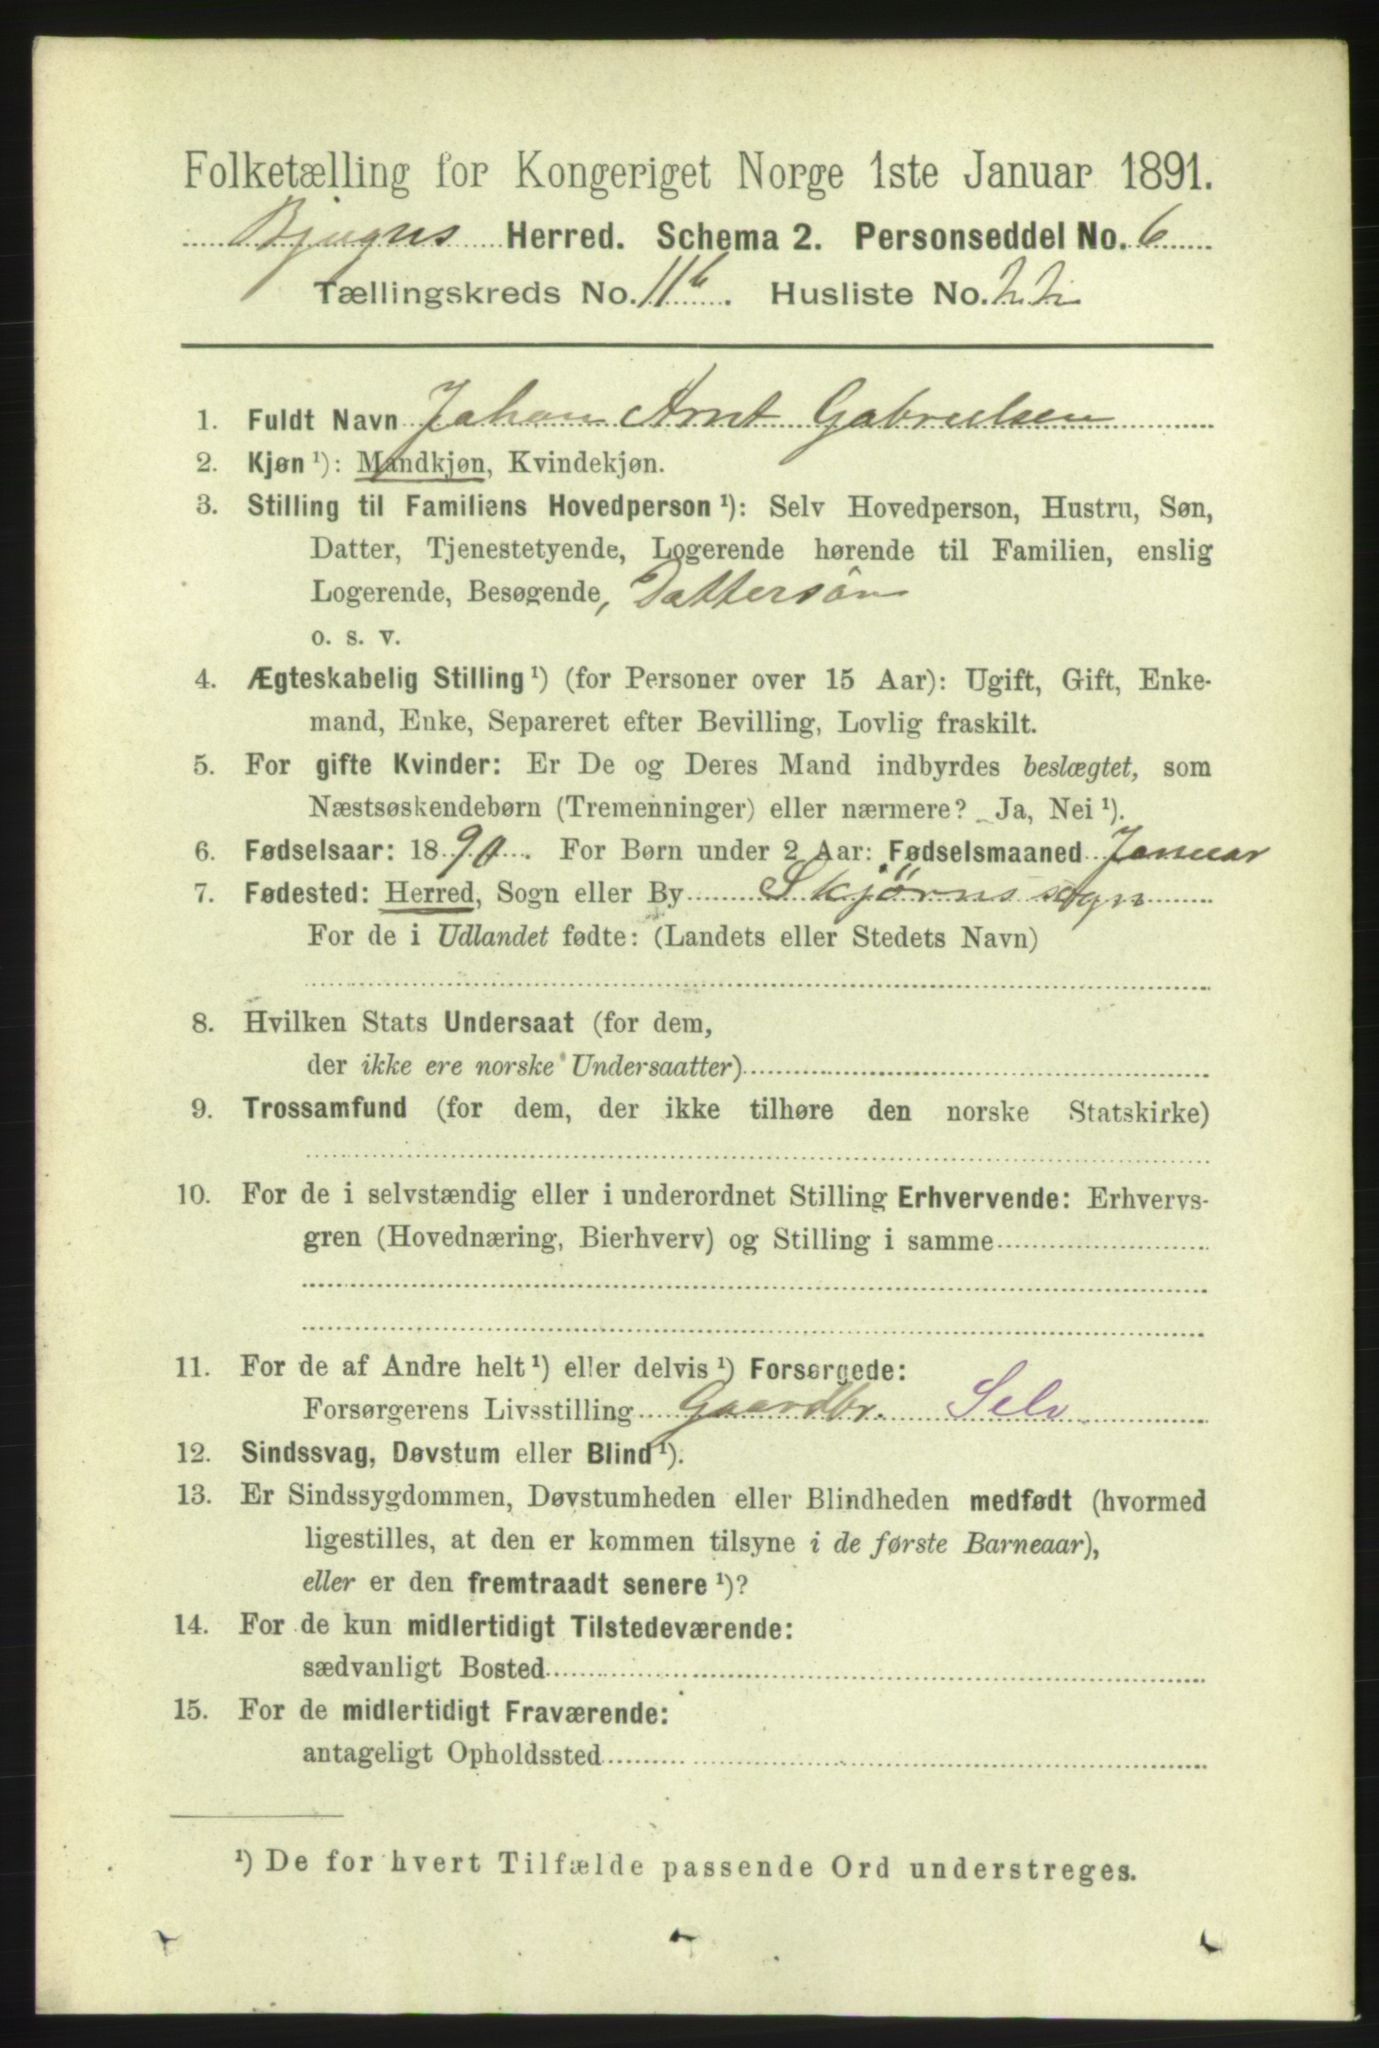 Folketælling for Kongeriget Norge 1ste Januar 1891.
Bjugns Herred. Schema 2. Personseddel No. 6
Tællingskreds No. 11b. Husliste No. 22
1. Fuldt Navn Johan Arnt Gabrielsen
2. Kjøn ¹): Mandkjøn, Kvindekjøn.
3. Stilling til Familiens Hovedperson ¹): Selv Hovedperson, Hustru, Søn,
Datter, Tjenestetyende, Logerende hørende til Familien, enslig
Logerende, Besøgende, Dattersøn
o. s. v.
4. Ægteskabelig Stilling ¹) (for Personer over 15 Aar): Ugift, Gift, Enke-
mand, Enke, Separeret efter Bevilling, Lovlig fraskilt.
5. For gifte Kvinder: Er De og Deres Mand indbyrdes beslægtet, som
Næstsøskendebørn (Tremenninger) eller nærmere? Ja, Nei ¹).
6. Fødselsaar: 1890. For Børn under 2 Aar: Fødselsmaaned Januar
7. Fødested: Herred, Sogn eller By Skjørns sogn
For de i Udlandet fødte: (Landets eller Stedets Navn)
8. Hvilken Stats Undersaat (for dem,
der ikke ere norske Undersaatter)
9. Trossamfund (for dem, der ikke tilhøre den norske Statskirke)
10. For de i selvstændig eller i underordnet Stilling Erhvervende: Erhvervs-
gren (Hovednæring, Bierhverv) og Stilling i samme
11. For de af Andre helt ¹) eller delvis ¹) Forsørgede:
Forsørgerens Livsstilling Gaardbr. Selv
12. Sindssvag, Døvstum eller Blind ¹).
13. Er Sindssygdommen, Døvstumheden eller Blindheden medfødt (hvormed
ligestilles, at den er kommen tilsyne i de første Barneaar),
eller er den fremtraadt senere ¹)?
14. For de kun midlertidigt Tilstedeværende:
sædvanligt Bosted
15. For de midlertidigt Fraværende:
antageligt Opholdssted
¹) De for hvert Tilfælde passende Ord understreges.